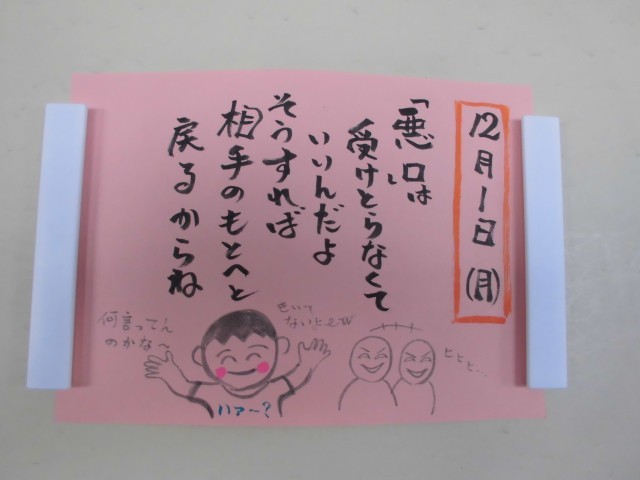 12月1日(月)
「悪口は
受けとらなくて
いいんだよ
そうすれば
相手のもとへと
戻るからね
何言ってん
のかな～
ハァ～?
ヒヒヒ…